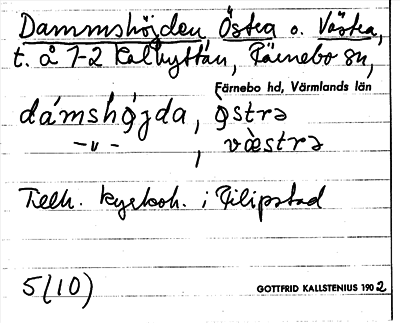 Dammshöjden Östra o. Västra,
t. å 1-2 Kalhyttan, Färnebo sn,
Färnebo hd, Värmlands län
dámshø̀jda, ø̀strə
–„– , væ̀strə
Tillh. kyrkoh. i Filipstad
5(10)
GOTTFRID KALLSTENIUS 1902